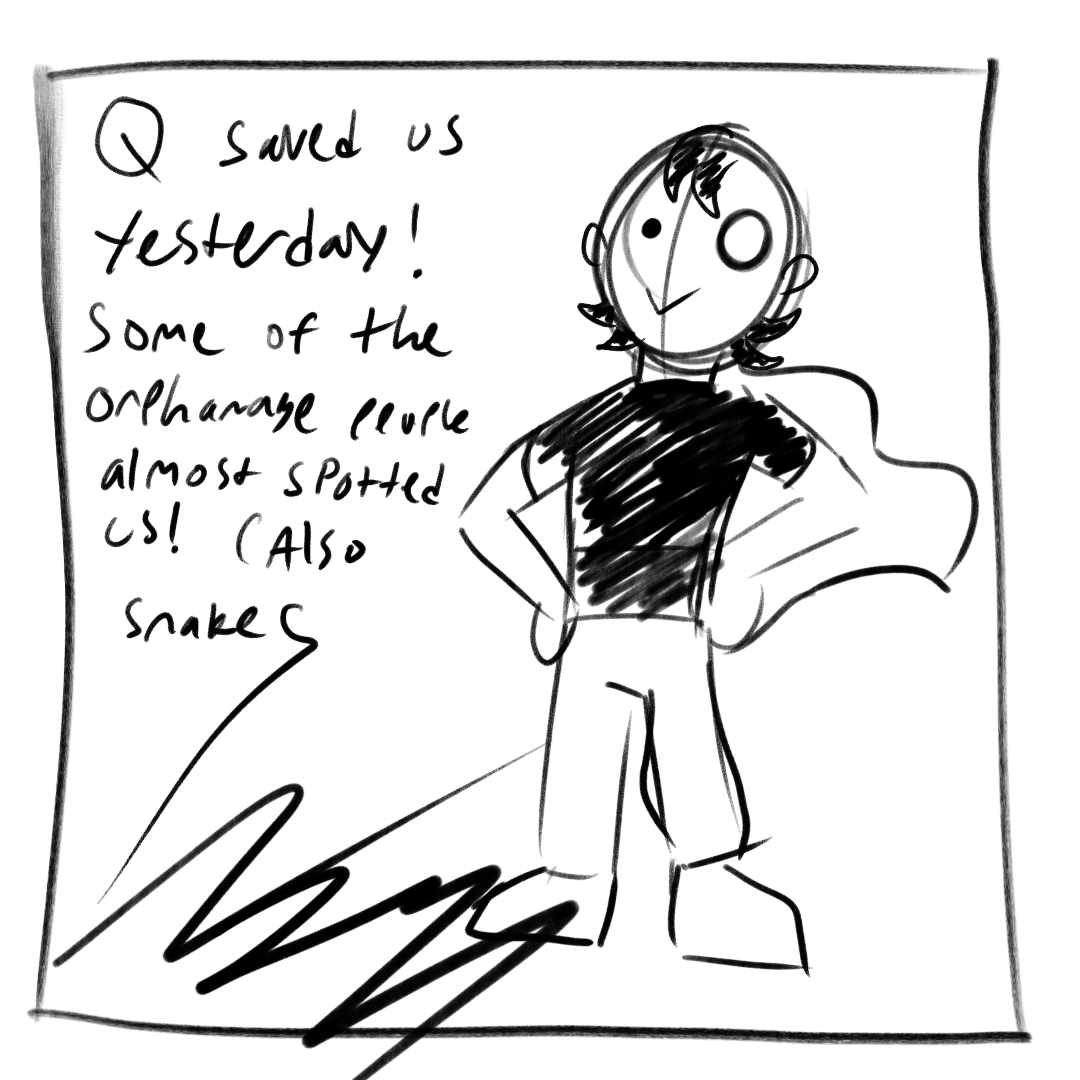 Q saved us
Yesterday!
Some of the
orphanage people
almost spotted
us! (Also
snakes